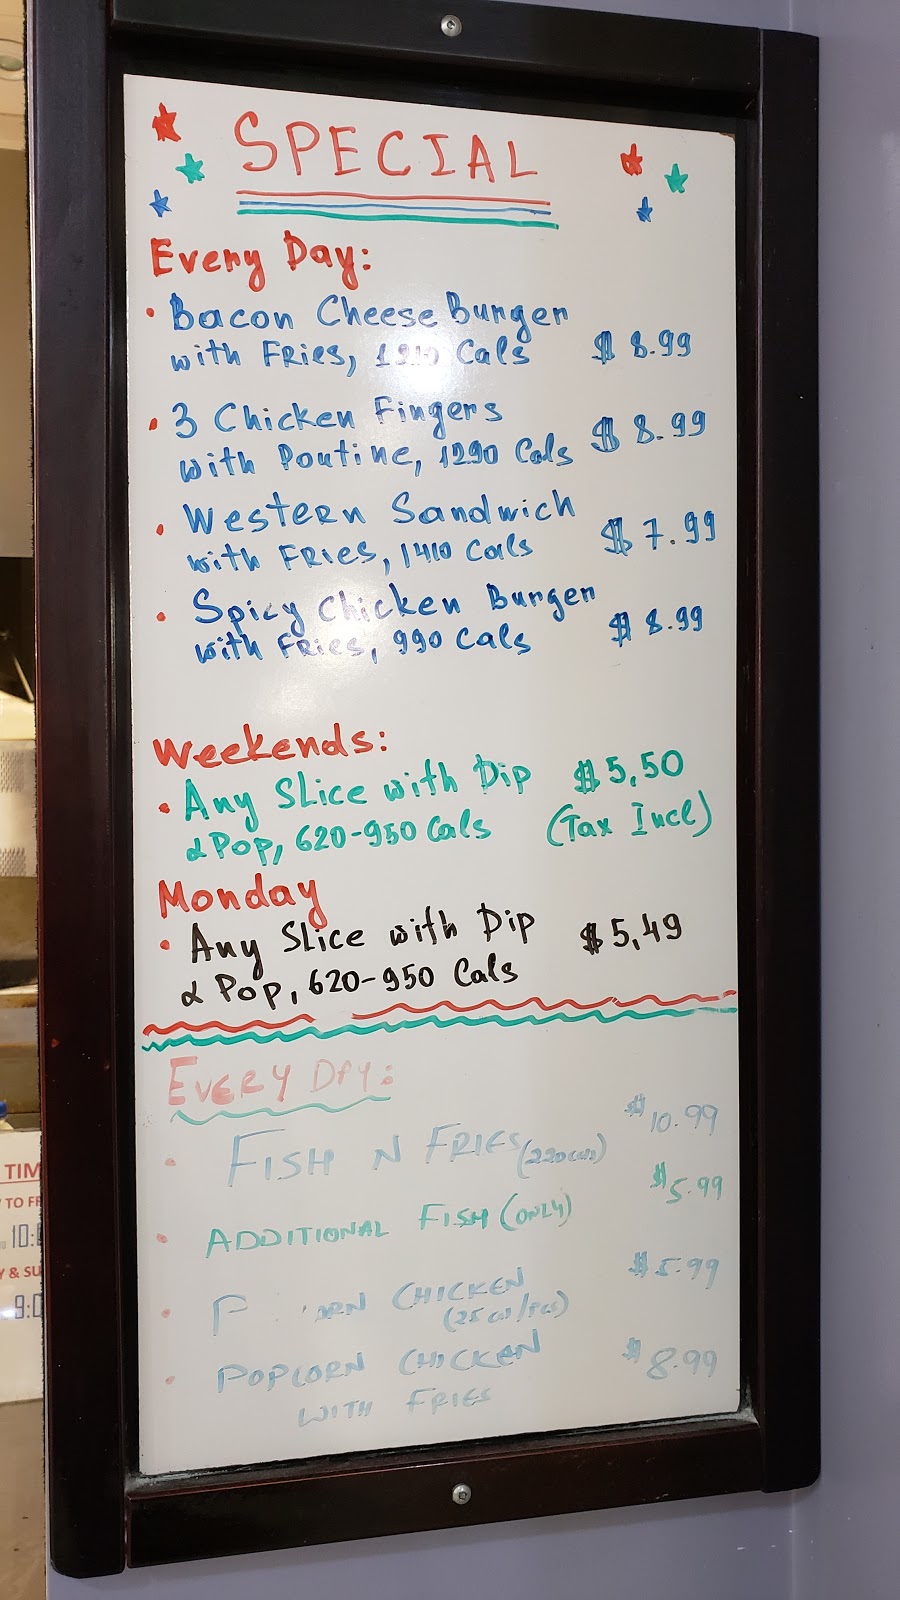 SPECIAL
Every Day:
• Bacon Cheese Burger
with Fries, Cals $ 8.99
• 3 Chicken Fingers
with Poutine, 1290 Cals $ 8.99
• Western Sandwich
with Fries, 1410 Cals $ 7.99
• Spicy Chicken Burger
with Fries, 990 Cals $ 8.99
Weekends:
• Any Slice with Dip $ 5,50
& Pop, 620-950 Cals (Tax Incl)
Monday
• Any Slice with Dip $ 5,49
& Pop, 620-950 Cals
EVERY DAY:
• FISH N FRIES $ 10.99
• ADDITIONAL FISH (ONLY) $ 5.99
• CHICKEN $ 5.99
• POPCORN CHICKEN $ 8.99
WITH FRIES
TIM
TO FR
10:
Y & SU
9:0